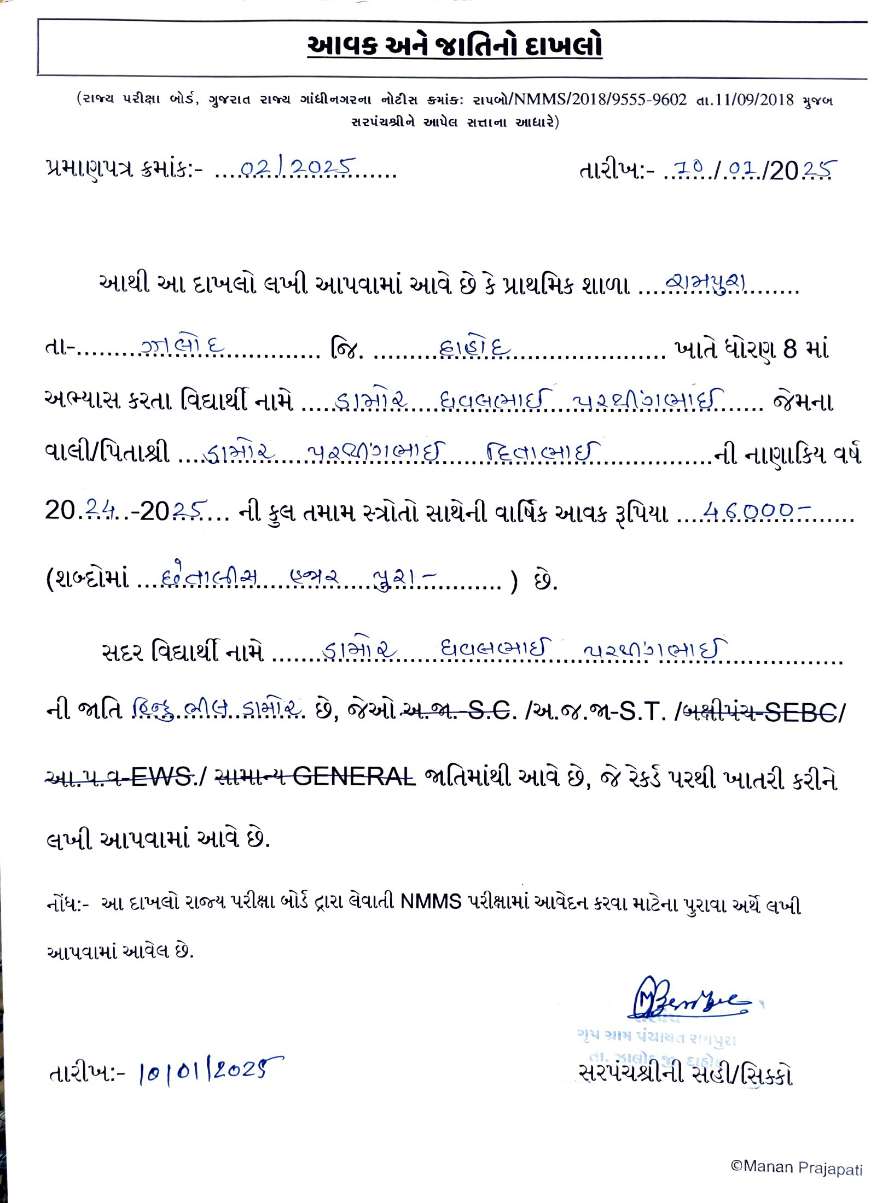 આવક અને જાતિનો દાખલો
(રાજ્ય પરીક્ષા બોર્ડ, ગુજરાત રાજ્ય ગાંધીનગરના નોટીસ ક્રમાંક: રાપબો/NMMS/2018/9555-9602 તા.11/09/2018 મુજબ
સરપંચશ્રીને આપેલ સત્તાના આધારે)
પ્રમાણપત્ર ક્રમાંક:- ....02/2025.............. તારીખ:- .10./.01./2025
આથી આ દાખલો લખી આપવામાં આવે છે કે પ્રાથમિક શાળા ....રામપુરા.........
તા-..........ઝાલોદ............... જિ. ..........દાહોદ...................... ખાતે ધોરણ 8 માં
અભ્યાસ કરતા વિદ્યાર્થી નામે .....ડામોર ધવલભાઈ પરથીંગભાઈ....... જેમના
વાલી/પિતાશ્રી ....ડામોર પરથીંગભાઈ દિતાભાઈ...............ની નાણાકિય વર્ષ
20.24..-2025.... ની કુલ તમામ સ્ત્રોતો સાથેની વાર્ષિક આવક રૂપિયા ....46000-......
(શબ્દોમાં ...છેતાલીસ હજાર પુરા-.......... ) છે.
સદર વિદ્યાર્થી નામે .......ડામોર ધવલભાઈ પરથીંગભાઈ..............
ની જાતિ હિન્દુ ભીલ ડામોર છે, જેઓ અ.જા.-S.C. /અ.જ.જા-S.T. /બક્ષીપંચ-SEBC/
આ.પ.વ-EWS./ સામાન્ય GENERAL જાતિમાંથી આવે છે, જે રેકર્ડ પરથી ખાતરી કરીને
લખી આપવામાં આવે છે.
નોંધ:- આ દાખલો રાજ્ય પરીક્ષા બોર્ડ દ્વારા લેવાતી NMMS પરીક્ષામાં આવેદન કરવા માટેના પુરાવા અર્થે લખી
આપવામાં આવેલ છે.
ગૃપ ગ્રામ પંચાયત રામપુરા
તા. ઝાલોદ જી. દાહોદ
તારીખ:- 10/01/2025 સરપંચશ્રીની સહી/સિક્કો
©Manan Prajapati